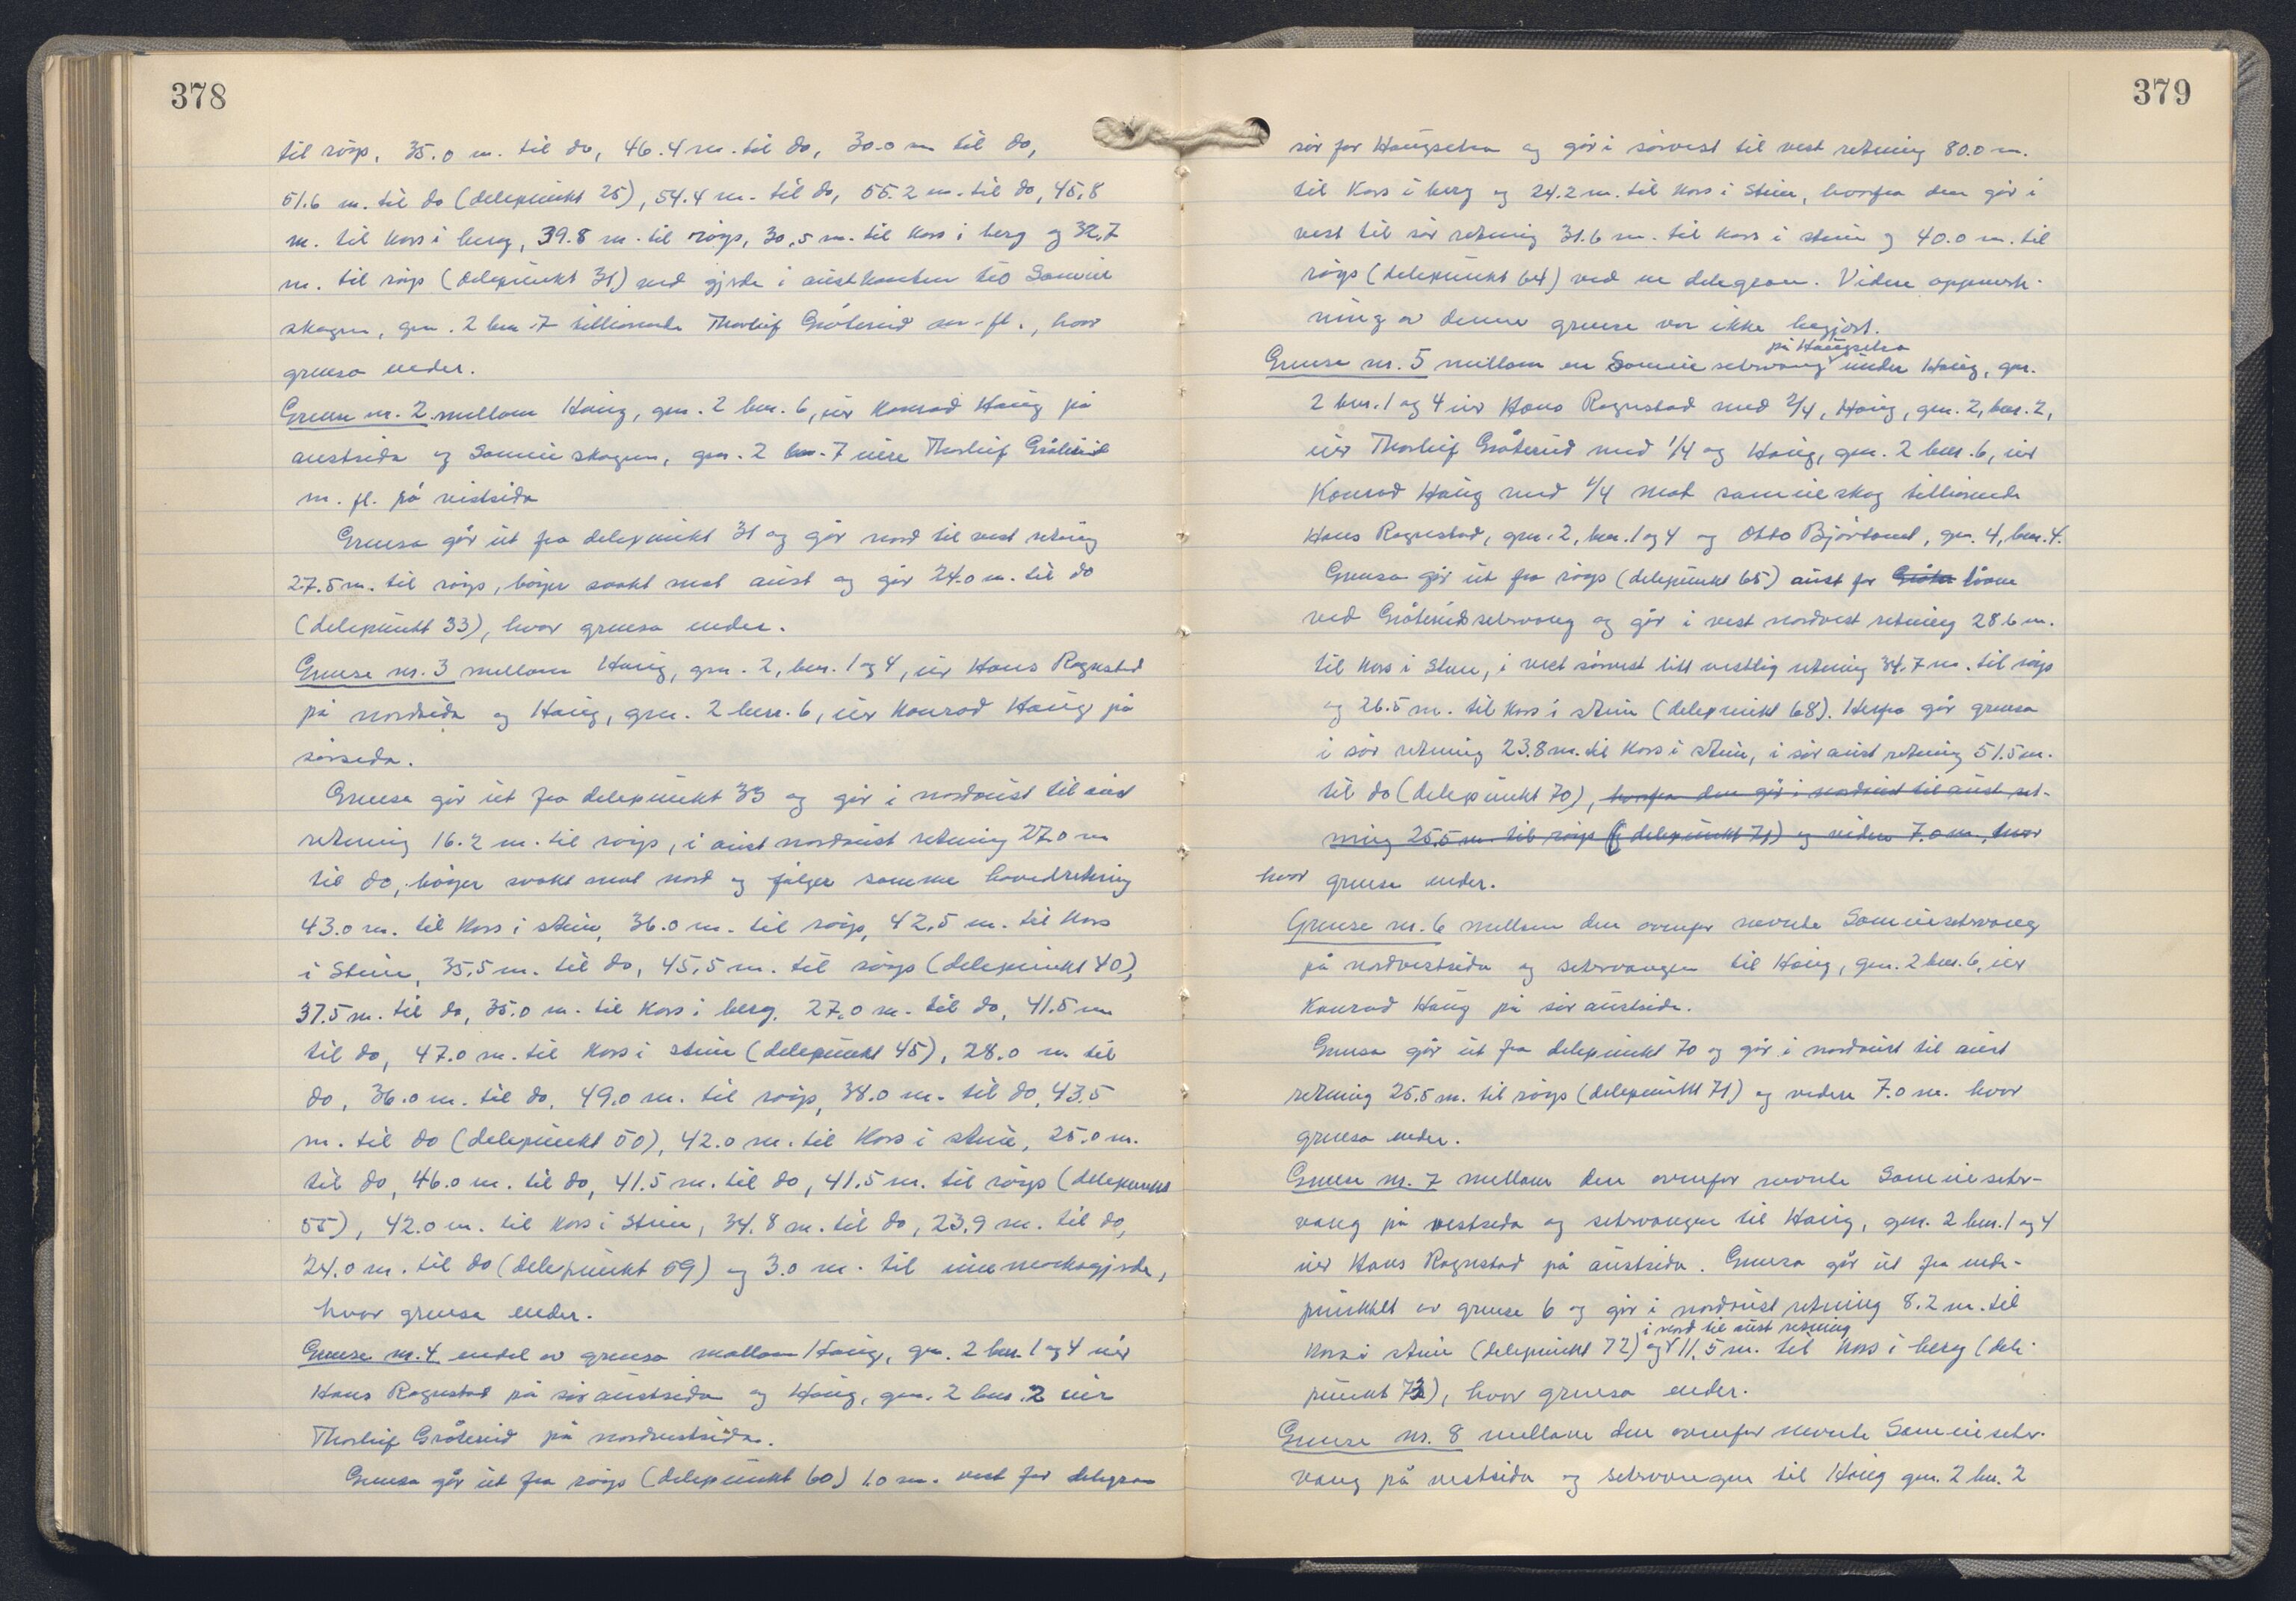 378
til röys, 35.0 m. til do, 46.4 m. til do, 30.0 m til do,
51.6 m. til do (delepunkt 25), 54.4 m. til do, 55.2 m. til do, 45,8
m. til kors i berg, 39.8 m. til röys, 30,5 m. til kors i berg og 32,7
m. til röys (delepunkt 31) ved gjerde i austkanten til Sameie
skogen, gnr. 2 bnr. 7 tilhørende Thorleif Gråterud m. fl., hvor
grensa ender.
Grense nr. 2 mellom Haug, gnr. 2 bnr. 6, eier Konrad Haug på
austsida og Sameieskogen, gnr. 2 bnr. 7 eiere Thorleif Gråterud
m. fl. på vestsida
Grensa går ut fra delepunkt 31 og går nord til vest retning
27.5 m. til röys, böyer svakt mot aust og går 24.0 m. til do
(delepunkt 33), hvor grensa ender.
Grense nr. 3 mellom Haug, gnr. 2, bnr. 1 og 4, eier Hans Rognstad
på nordsida og Haug, gnr. 2 bnr. 6, eier Konrad Haug på
sørsida.
Grensa går ut fra delepunkt 33 og går i nordaust til aust
retning 16.2 m. til röys, i aust nordaust retning 27.0 m
til do, böyer svakt mot nord og følger samme hovedretning
43.0 m. til kors i stein, 36.0 m. til röys, 42,5 m. til kors
i Stein, 35,5 m. til do, 45,5 m. til röys (delepunkt 40),
37.5 m. til do, 35.0 m. til kors i berg, 27,0 m. til do, 41.5 m
til do, 47.0 m. til kors i stein (delepunkt 45), 28.0 m til
do, 36.0 m. til do, 49.0 m. til röys, 38.0 m. til do, 43.5
m. til do (delepunkt 50), 42.0 m. til kors i stein, 25.0 m.
til do, 46.0 m. til do, 41.5 m. til do, 41.5 m. til röys (delepunkt
55), 42.0 m. til kors i Stein, 34.8 m. til do, 23.9 m. til do,
24.0 m. til do (delepunkt 59) og 3.0 m. til innmarksgjerde,
hvor grensa ender.
Grense nr. 4 endel av grensa mellom Haug, gnr. 2 bnr. 1 og 4 eier
Hans Rognstad på sør austsida og Haug, gnr. 2 bnr. 2 eier
Thorleif Gråterud på nordvestsida.
Grensa går ut fra röys (delepunkt 60) 1.0 m. vest for delegran
379
sør for Haugsetra og går i sørvest til vest retning 80.0 m.
til kors i berg og 24.2 m. til kors i Stein, hvorfra den går i
vest til sør retning 31.6 m. til kors i stein og 40.0 m. til
röys (delepunkt 64) ved en delegran. Videre oppmerk-
ning av denne grense var ikke begjært.
på Haugsetra
Grense nr. 5 mellom en Sameie setervang under Haug, gnr.
2 bnr. 1 og 4 eier Hans Rognstad med 2/4, Haug, gnr. 2, bnr. 2,
eier Thorleif Gråterud med 1/4 og Haug, gnr. 2 bnr. 6, eier
Konrad Haug med 1/4 mot sameieskog tilhørende
Hans Rognstad, gnr. 2, bnr. 1 og 4 og Otto Bjørtomt, gnr. 4, bnr. 4.
Grensa går ut fra röys (delepunkt 65) aust for Gråte låven
ved Gråterudsetervang og går i vest nordvest retning 28.6 m.
til kors i Stein, i vest sørvest litt vestlig retning 34.7 m. til röys
og 26.5 m. til kors i stein (delepunkt 68). Herfra går grensa
i sør retning 23.8 m. til kors i stein, i sør aust retning 51.5 m.
til do (delepunkt 70), hvorfra den går i nordaust til aust ret-
ning 25.5 m. til röys (delepunkt 71) og videre 7.0 m., hvor
hvor grensa ender.
Grense nr. 6 mellom den ovenfor nevnte Sameiesetervang
på nordvestsida og setervangen til Haug, gnr. 2 bnr. 6, eier
Konrad Haug på sør austsida.
Grensa går ut fra delepunkt 70 og går i nordaust til aust
retning 25.5 m. til röys (delepunkt 71) og videre 7.0 m. hvor
grensa ender.
Grense nr. 7 mellom den ovenfor nevnte Sameieseter-
vang på vestsida og setervangen til Haug, gnr. 2 bnr. 1 og 4
eier Hans Rognstad på austsida. Grensa går ut fra ende-
punktet av grense 6 og går i nordaust retning 8.2 m. til
i nord til aust retning
kors i stein (delepunkt 72) og 11.5 m. til kors i berg (dele-
punkt 73), hvor grensa ender.
Grense nr. 8 mellom den ovenfor nevnte Sameieseter-
vang på vestsida og setervangen til Haug gnr. 2 bnr. 2